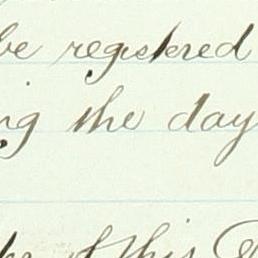 be registered
ng the day
of this